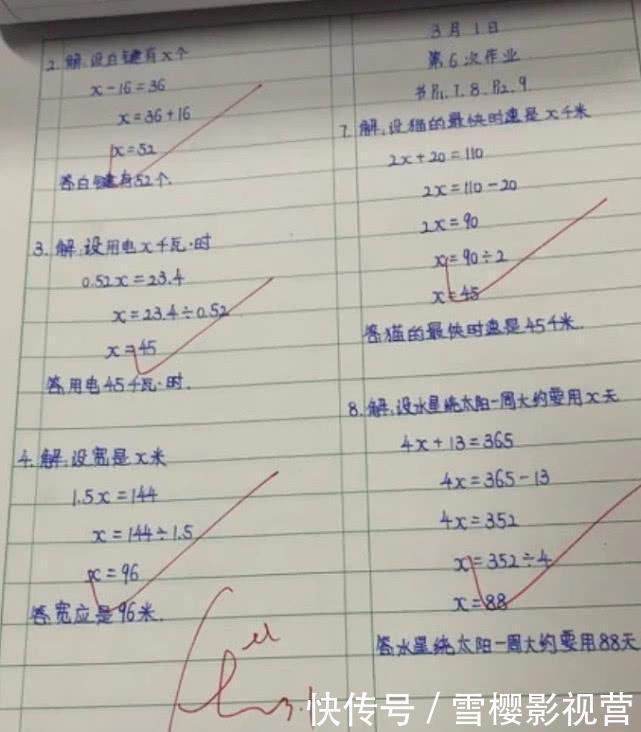 2. 解:设白键有x个
x-16=36
x=36+16
x=52
答白键有52个.
3. 解:设用电x千瓦·时
0.52x=23.4
x=23.4÷0.52
x=45
答用电45千瓦·时.
4. 解:设宽是x米
1.5x=144
x=144÷1.5
x=96
答宽应是96米.
3月1日
第6次作业
7. 解:设猫的最快时速是x千米
2x+20=110
2x=110-20
2x=90
x=90÷2
x=45
答猫的最快时速是45千米.
8. 解:设水星绕太阳一周大约要用x天
4x+13=365
4x=365-13
4x=352
x=352÷4
x=88
答水星绕太阳一周大约要用88天
快传号/雪樱影视营